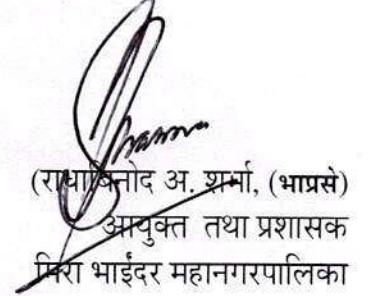 (राधाबिनोद अ. शर्मा, (भाप्रसे)
आयुक्त तथा प्रशासक
मिरा भाईंदर महानगरपालिका